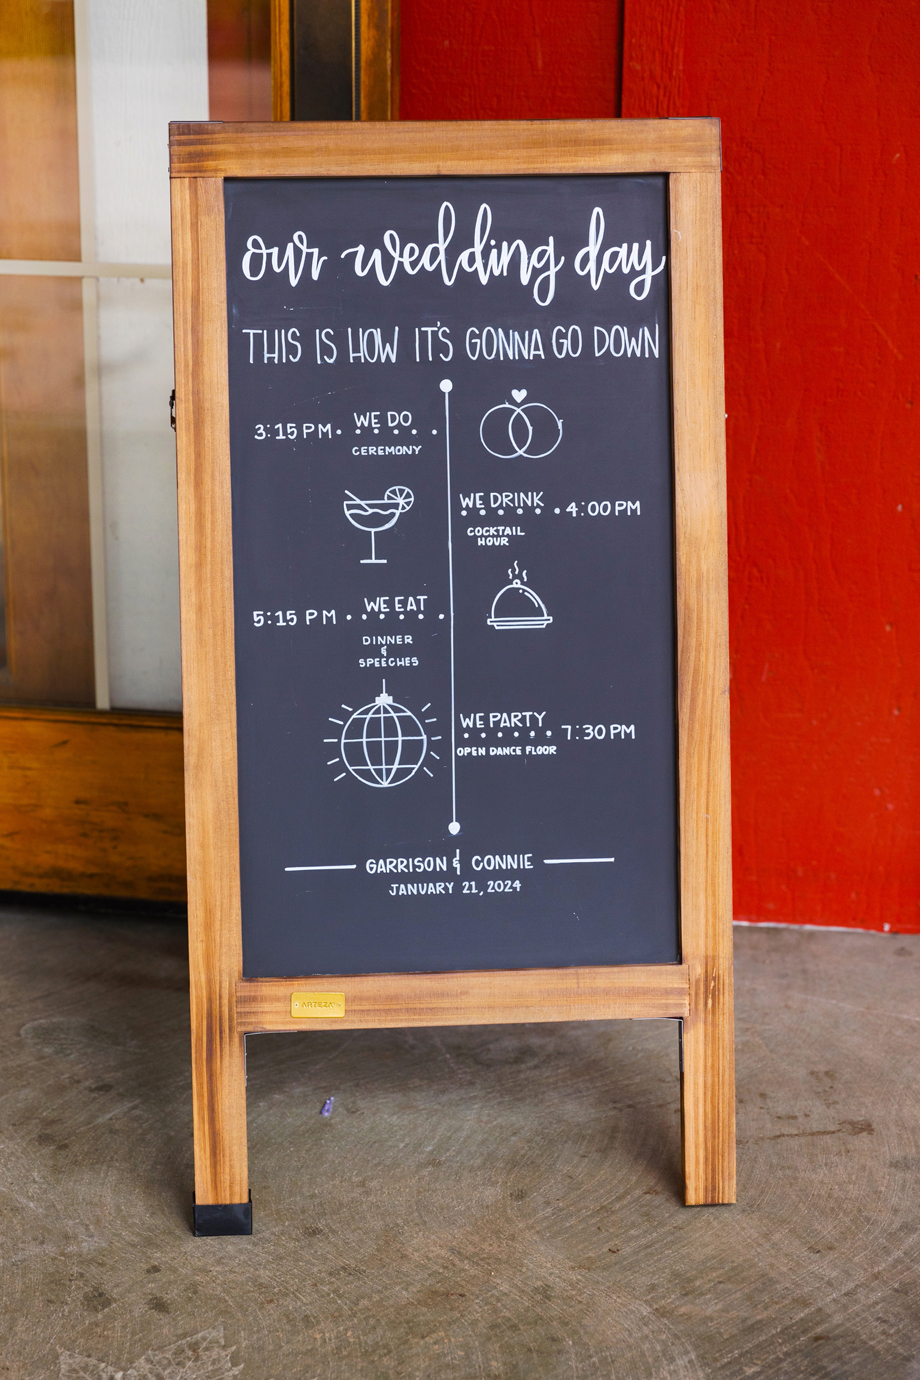 our wedding day
THIS IS HOW IT'S GONNA GO DOWN
3:15 PM WE DO
CEREMONY
WE DRINK 4:00 PM
COCKTAIL
HOUR
5:15 PM WE EAT
DINNER
&
SPEECHES
WE PARTY 7:30 PM
OPEN DANCE FLOOR
GARRISON & CONNIE
JANUARY 21, 2024
ARTEZA